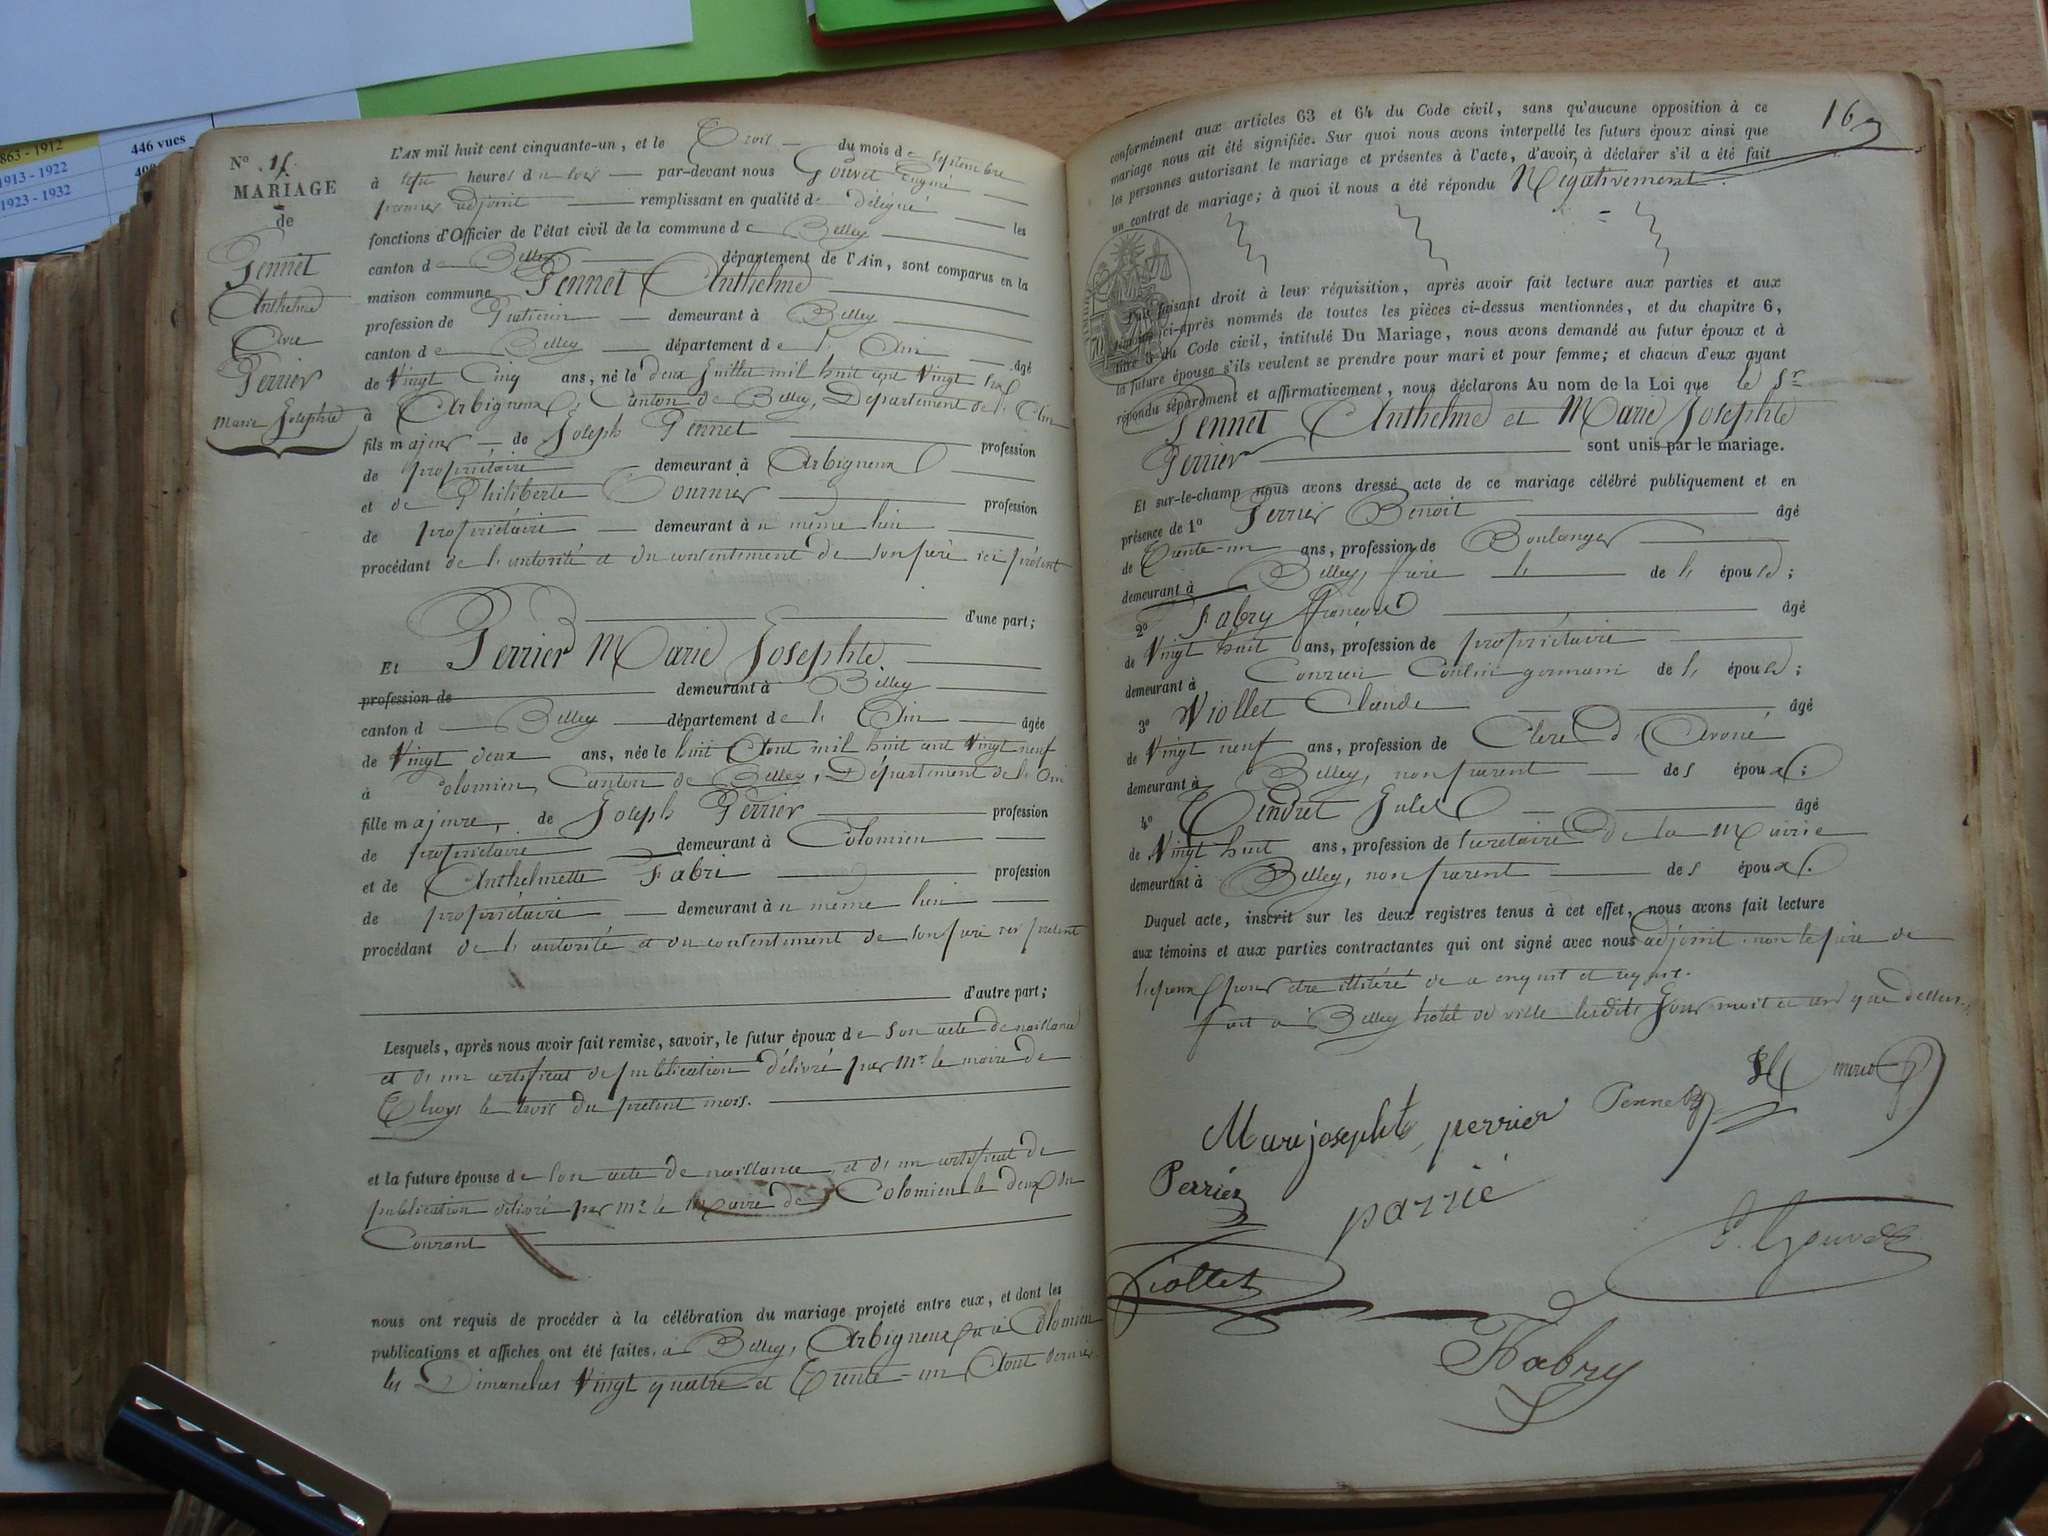 863 - 1912
446 vues
1913 - 1922
1923 - 1932
N° 15.
MARIAGE
de
Pennet
Anthelme
Avec
Perrier
Marie Josephte
L'AN mil huit cent cinquante-un, et le Trois du mois de Septembre
à sept heures du soir par-devant nous Gouvet Eugène
premier adjoint remplissant en qualité de délégué les
fonctions d'Officier de l'état civil de la commune de Belley
canton de Belley département de l'Ain, sont comparus en la
maison commune Pennet Anthelme
profession de demeurant à Belley
canton de Belley département de l'Ain âgé
de Vingt Cinq ans, né le deux Juillet mil huit cent Vingt six
à Arbignieux, Canton de Belley, Département de l'Ain
fils majeur de Joseph Pennet profession
de propriétaire demeurant à Arbignieux
et de Philiberte Fournier profession
de propriétaire demeurant au même lieu
procédant de l'autorité et du consentement de son père ici présent
d'une part;
Et Perrier Marie Josephte
profession de demeurant à Belley
canton de Belley département de l'Ain âgée
de Vingt deux ans, née le huit Aout mil huit cent Vingt neuf
à Colomieu, Canton de Belley, Département de l'Ain
fille majeure, de Joseph Perrier profession
de propriétaire demeurant à Colomieu
et de Anthelmette Fabri profession
de propriétaire demeurant au même lieu
procédant de l'autorité et du consentement de son père ici présent
d'autre part;
Lesquels, après nous avoir fait remise, savoir, le futur époux de son acte de naissance
et d'un certificat de publication délivré par Mr le maire de
le trois du présent mois.
et la future épouse de son acte de naissance, et d'un certificat de
publication délivré par Mr le Maire de Colomieu le deux du
Courant
nous ont requis de procéder à la célébration du mariage projeté entre eux, et dont les
publications et affiches ont été faites, à Belley, Arbignieux et à Colomieu
les Dimanches Vingt quatre et Trente-un Aout dernier
16
conformément aux articles 63 et 64 du Code civil, sans qu'aucune opposition à ce
mariage nous ait été signifiée. Sur quoi nous avons interpellé les futurs époux ainsi que
les personnes autorisant le mariage et présentes à l'acte, d'avoir, à déclarer s'il a été fait
un contrat de mariage; à quoi il nous a été répondu Négativement.
faisant droit à leur réquisition, après avoir fait lecture aux parties et aux
ci-après nommés de toutes les pièces ci-dessus mentionnées, et du chapitre 6,
du Code civil, intitulé Du Mariage, nous avons demandé au futur époux et à
la future épouse s'ils veulent se prendre pour mari et pour femme; et chacun d'eux ayant
répondu séparément et affirmativement, nous déclarons Au nom de la Loi que le Sr
Pennet Anthelme et Marie Josephte
Perrier sont unis par le mariage.
Et sur-le-champ nous avons dressé acte de ce mariage célébré publiquement et en
présence de 1° Perrier Benoit âgé
de Trente-un ans, profession de Boulanger
demeurant à Belley, frère de l'épouse;
2° Fabry François âgé
de Vingt huit ans, profession de propriétaire
demeurant à Conzieu Cousin germain de l'épouse;
3° Viollet Claude âgé
de Vingt neuf ans, profession de Clerc d'Avoué
demeurant à Belley, non parent des époux;
4° Tendret Jules âgé
de Vingt huit ans, profession de Secrétaire de la Mairie
demeurant à Belley, non parent des époux.
Duquel acte, inscrit sur les deux registres tenus à cet effet, nous avons fait lecture
aux témoins et aux parties contractantes qui ont signé avec nous adjoint non le père de
l'époux pour être illitéré de ce enquis et requis.
fait à Belley hotel de ville lesdits Jour mois et an que dessus.
Marijosephte perrier Pennet
Perrier
parrié
Viollet
E. Gouvet
Fabry